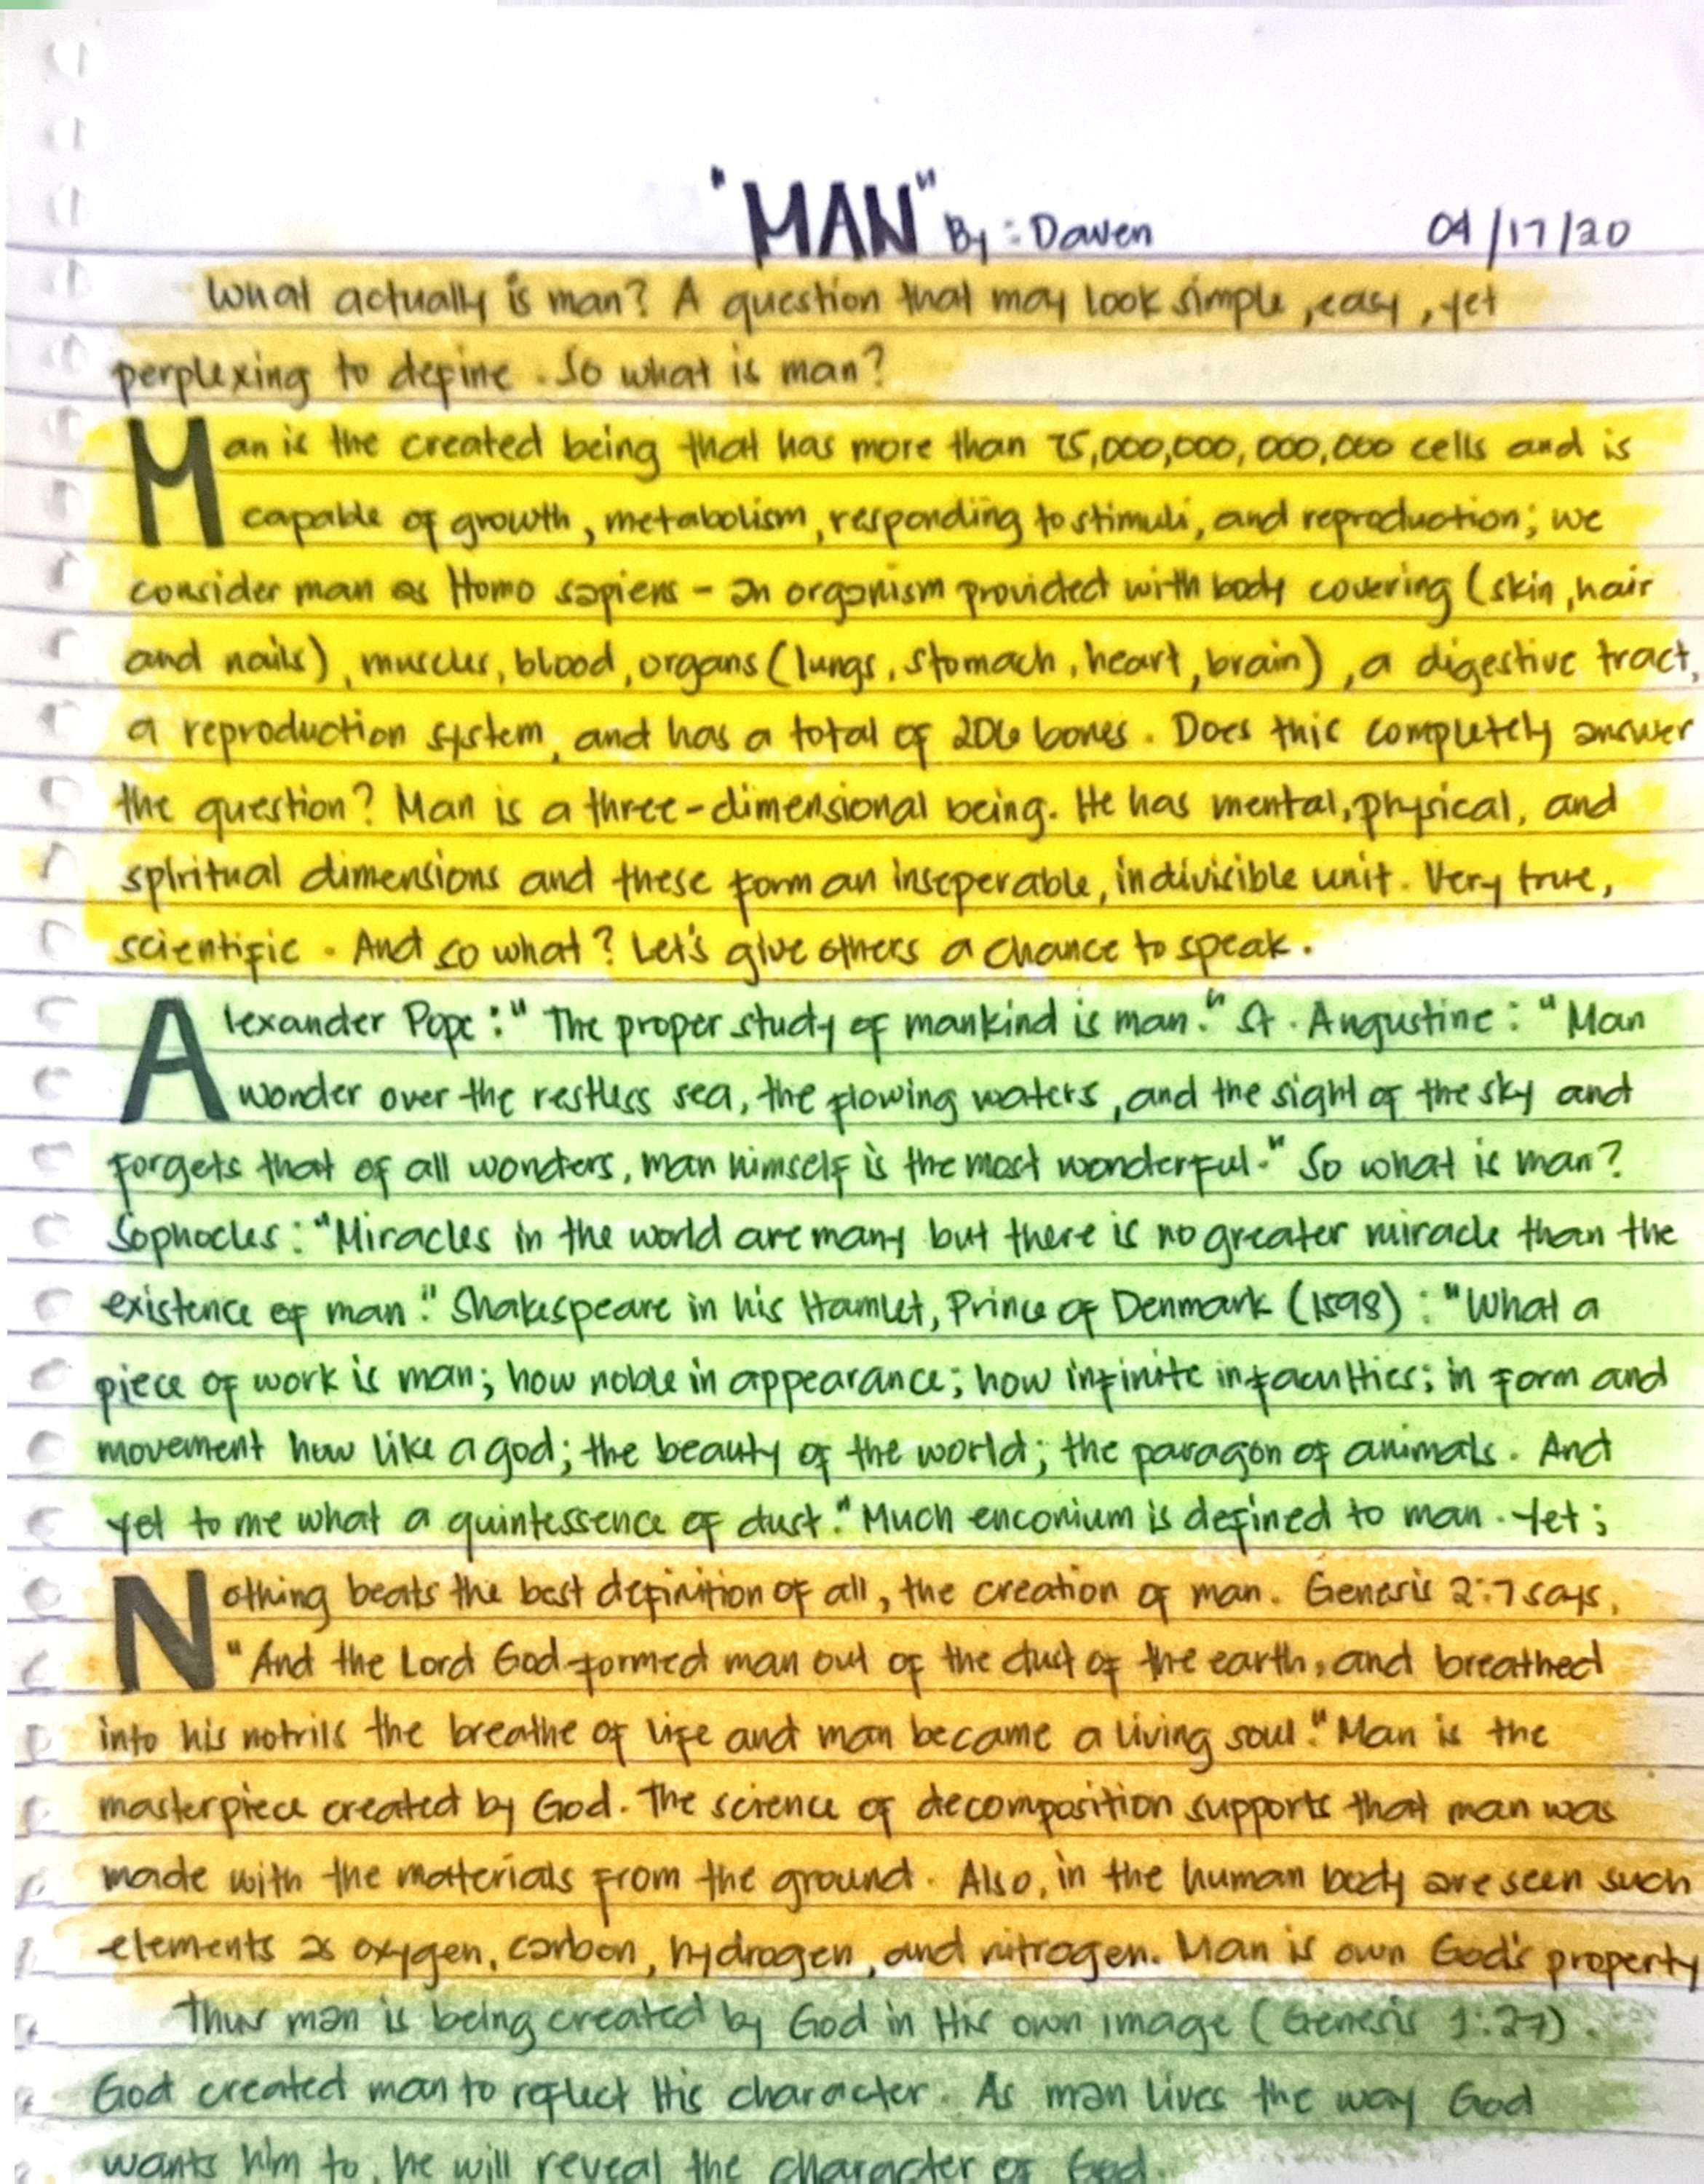 "MAN" By: Dawen 04/17/20
What actually is man? A question that may look simple, easy, yet
perplexing to define. So what is man?
Man is the created being that has more than 75,000,000,000,000 cells and is
capable of growth, metabolism, responding to stimuli, and reproduction; we
consider man as Homo sapiens - an organism provided with body covering (skin, hair
and nails), muscles, blood, organs (lungs, stomach, heart, brain), a digestive tract,
a reproduction system, and has a total of 206 bones. Does this completely answer
the question? Man is a three-dimensional being. He has mental, physical, and
spiritual dimensions and these form an inseperable, indivisible unit. Very true,
scientific. And so what? Let's give others a chance to speak.
Alexander Pope: "The proper study of mankind is man." St. Augustine: "Man
wonder over the restless sea, the flowing waters, and the sight of the sky and
forgets that of all wonders, man himself is the most wonderful." So what is man?
Sophocles: "Miracles in the world are many but there is no greater miracle than the
existence of man." Shakespeare in his Hamlet, Prince of Denmark (1598): "What a
piece of work is man; how noble in appearance; how infinite in faculties; in form and
movement how like a god; the beauty of the world; the paragon of animals. And
yet to me what a quintessence of dust." Much enconium is defined to man. Yet;
Nothing beats the best definition of all, the creation of man. Genesis 2:7 says,
"And the Lord God formed man out of the dust of the earth, and breathed
into his notrils the breathe of life and man became a living soul." Man is the
masterpiece created by God. The science of decomposition supports that man was
made with the materials from the ground. Also, in the human body are seen such
elements as oxygen, carbon, hydrogen, and nitrogen. Man is own God's property
Thus man is being created by God in His own image (Genesis 1:27).
God created man to reflect His character. As man lives the way God
wants him to, he will reveal the character of God.